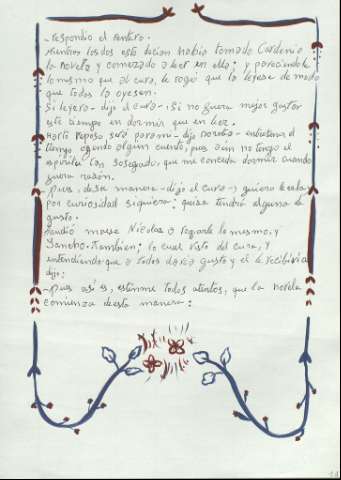 - respondio el Ventero.
Mientras los dos esto decian habia tomado Cardenio
la novela y comenzado a leer en ella; y pareciendole
lo mismo que al cura, le rogó que la leyese de modo
que todos la oyesen.
Si leyera - dijo el cura -. Si no fuera mejor gastar
este tiempo en dormir que en leer.
- Harto reposo será para mi - dijo - entretener el
tiempo oyendo algun cuento, pues aún no tengo el
espiritu tan sosegado, que me conceda dormir cuando
fuera razón.
- Pues, desa manera - dijo el cura -, quiero leerla,
por curiosidad siquiera; quiza tendrá alguno de
gusto.
Acudió maese Nicolas a rogarle lo mismo, y
Sancho. Tambien; lo cual visto del cura, y
entendiendo que a todos daria gusto y él le recibiria
dijo:
- Pues asi es, estenme todos atentos, que la novela
comienza desta manera: